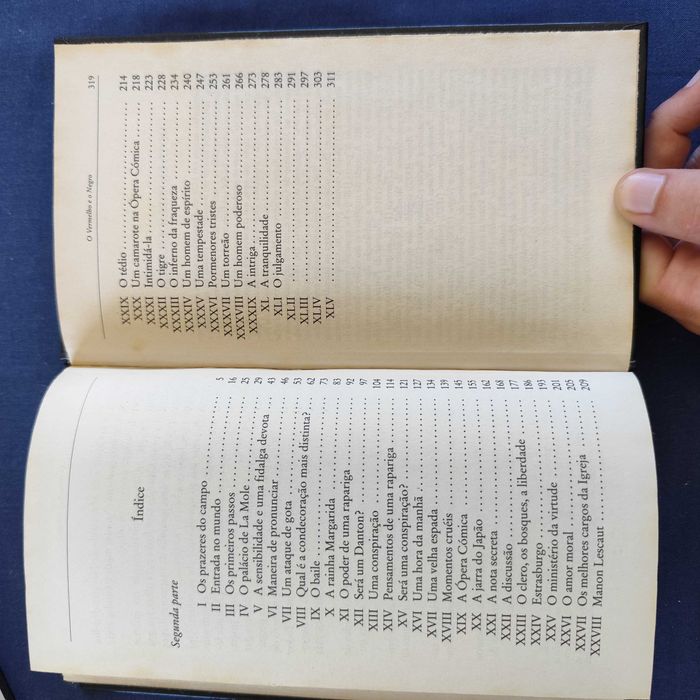 Índice
Segunda parte
I Os prazeres do campo . . . . . . . . . . 5
II Entrada no mundo . . . . . . . . . . 16
III Os primeiros passos . . . . . . . . . . 25
IV O palácio de La Mole . . . . . . . . . . 29
V A sensibilidade e uma fidalga devota . . . . . 43
VI Maneira de pronunciar . . . . . . . . . . 46
VII Um ataque de gota . . . . . . . . . . 53
VIII Qual é a condecoração mais distinta? . . . . . 62
IX O baile . . . . . . . . . . 73
X A rainha Margarida . . . . . . . . . . 83
XI O poder de uma rapariga . . . . . . . . . . 92
XII Será um Danton? . . . . . . . . . . 97
XIII Uma conspiração . . . . . . . . . . 104
XIV Pensamentos de uma rapariga . . . . . . . . . . 114
XV Será uma conspiração? . . . . . . . . . . 121
XVI Uma hora da manhã . . . . . . . . . . 127
XVII Uma velha espada . . . . . . . . . . 134
XVIII Momentos cruéis . . . . . . . . . . 139
XIX A Ópera Cómica . . . . . . . . . . 145
XX A jarra do Japão . . . . . . . . . . 155
XXI A nota secreta . . . . . . . . . . 162
XXII A discussão . . . . . . . . . . 168
XXIII O clero, os bosques, a liberdade . . . . . . . . . . 177
XXIV Estrasburgo . . . . . . . . . . 186
XXV O ministério da virtude . . . . . . . . . . 195
XXVI O amor moral . . . . . . . . . . 201
XXVII Os melhores cargos da Igreja . . . . . . . . . . 205
XXVIII Manon Lescaut . . . . . . . . . . 209
O Vermelho e o Negro 319
XXIX O tédio . . . . . . . . . . 214
XXX Um camarote na Ópera Cómica . . . . . . . . . . 218
XXXI Intimidá-la . . . . . . . . . . 223
XXXII O tigre . . . . . . . . . . 228
XXXIII O inferno da fraqueza . . . . . . . . . . 234
XXXIV Um homem de espírito . . . . . . . . . . 240
XXXV Uma tempestade . . . . . . . . . . 247
XXXVI Pormenores tristes . . . . . . . . . . 253
XXXVII Um torreão . . . . . . . . . . 261
XXXVIII Um homem poderoso . . . . . . . . . . 266
XXXIX A intriga . . . . . . . . . . 273
XL A tranquilidade . . . . . . . . . . 278
XLI O julgamento . . . . . . . . . . 283
XLII . . . . . . . . . . 291
XLIII . . . . . . . . . . 297
XLIV . . . . . . . . . . 303
XLV . . . . . . . . . . 311